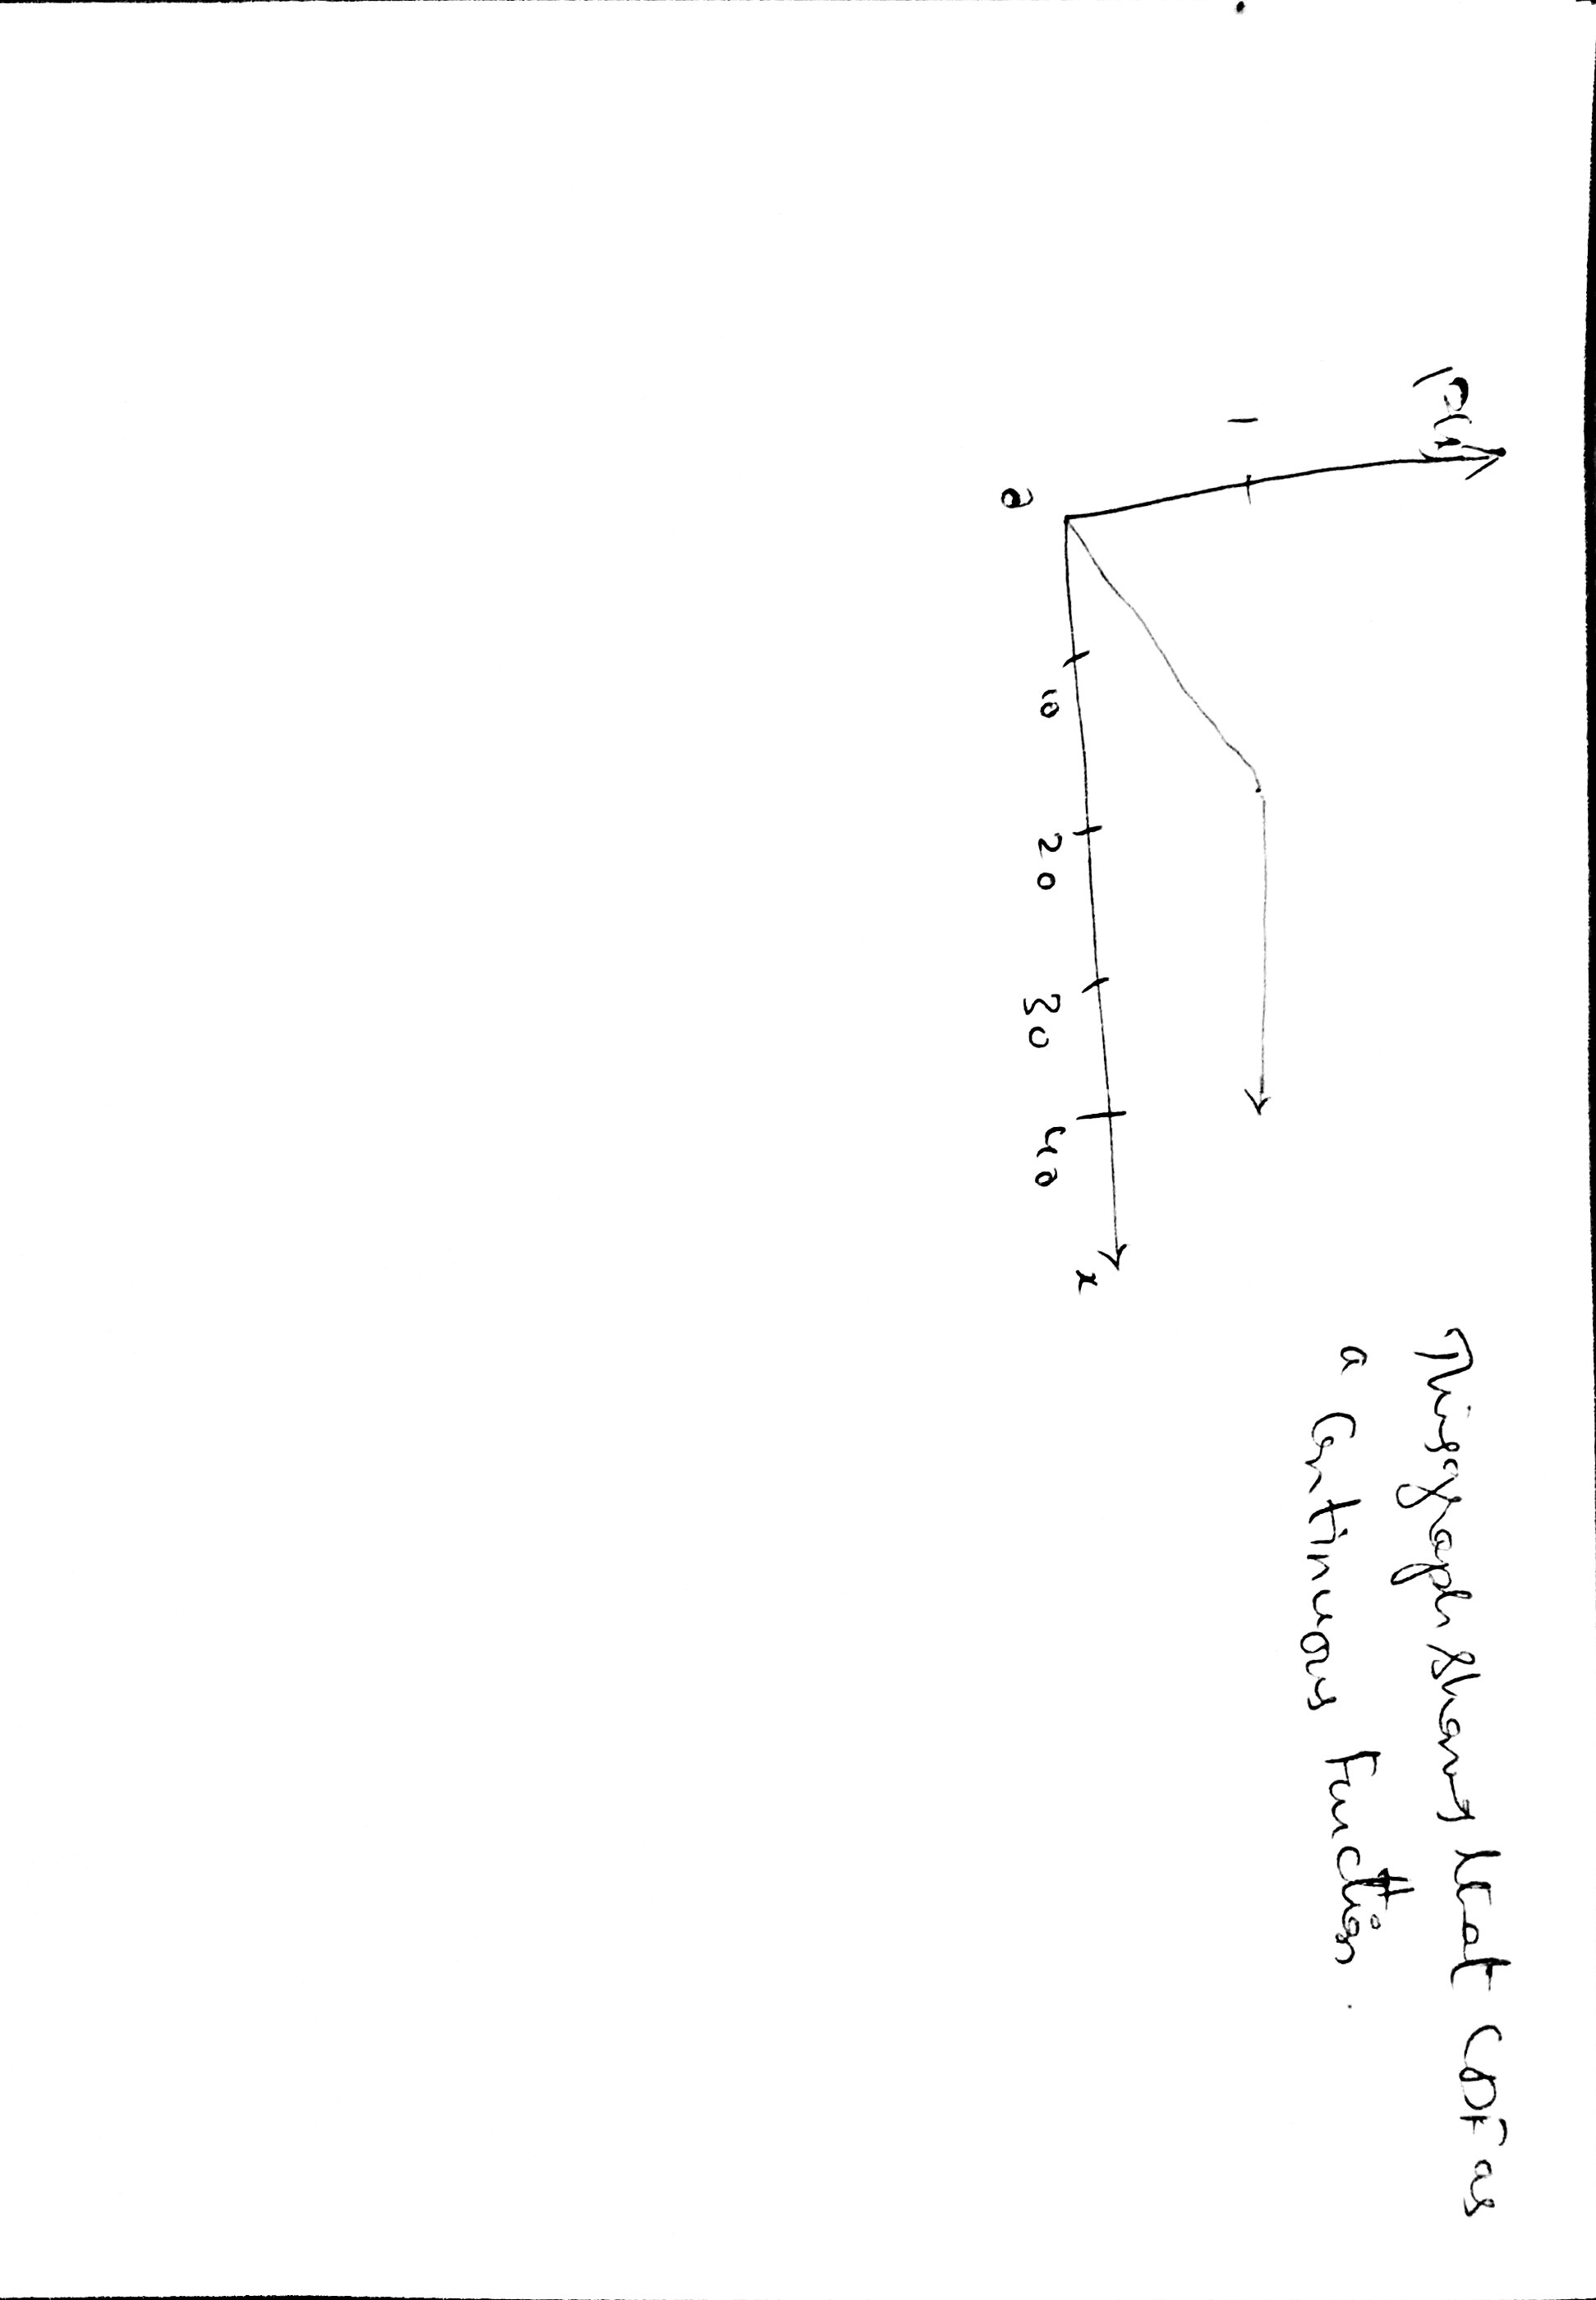 P(x)
1
0
10
20
30
40
x
This graph shows that CDF as
a Continuous Function.